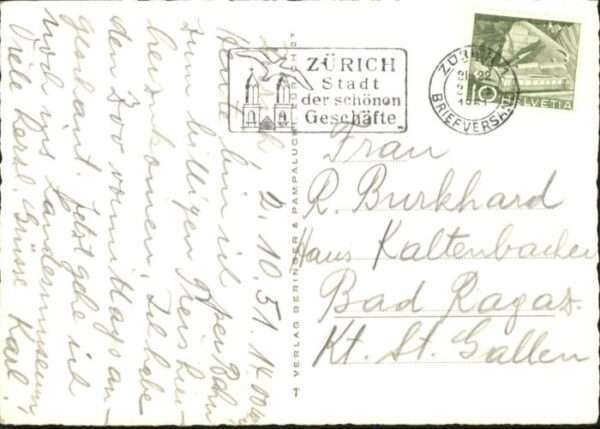 Zürich, 2.10.51. 14.00
Heute bin ich per Bahn
zum billigen Preis hier-
hergekommen. Ich habe
den Zoo vormittags an-
geschaut. Jetzt gehe ich
noch ins Landesmuseum.
Viele herzl. Grüsse Karl.
VERLAG BERINGER & PAMPALUCHI ZÜRICH
ZÜRICH
Stadt
der schönen
Geschäfte
ZÜRICH
22
1951
BRIEFVERSAND
10
HELVETIA
Frau
R. Burkhard
Haus Kaltenbacher
Bad Ragaz.
Kt. St. Gallen